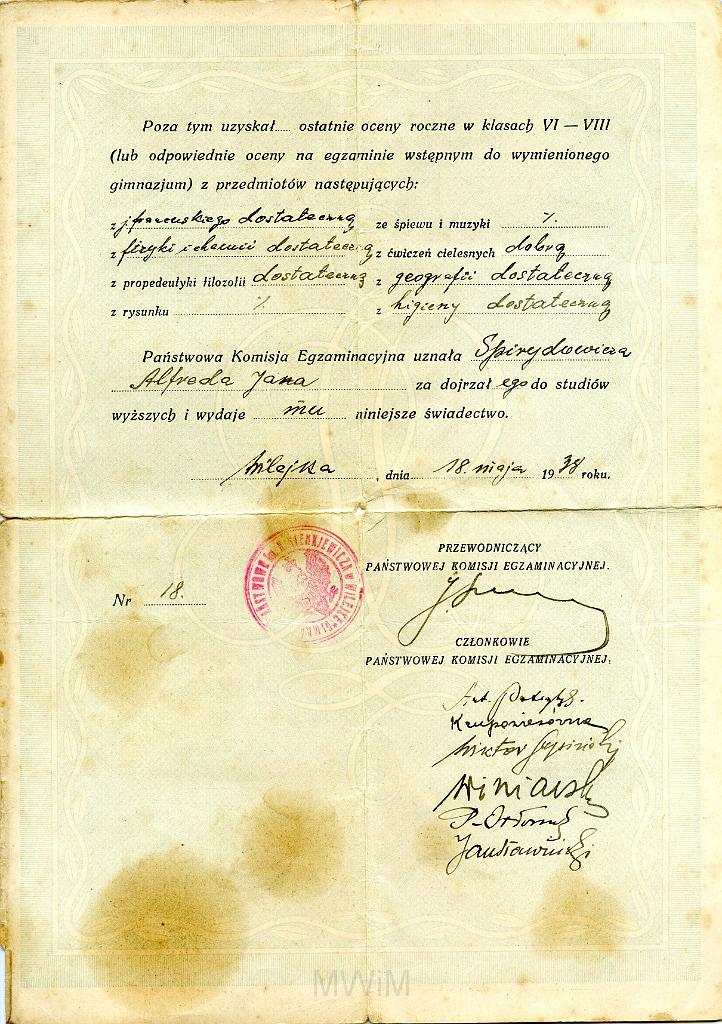 Poza tym uzyskał..... ostatnie oceny roczne w klasach VI — VIII
(lub odpowiednie oceny na egzaminie wstępnym do wymienionego
gimnazjum) z przedmiotów następujących:
z j. francuskiego dostateczną ze śpiewu i muzyki %
z fizyki i chemii dostateczną z ćwiczeń cielesnych dobrą
z propedeutyki filozofii dostateczną z geografii dostateczną
z rysunku % z higieny dostateczną
Państwowa Komisja Egzaminacyjna uznała Spirydowicza
Alfreda Jana za dojrzał ego do studiów
wyższych i wydaje mu niniejsze świadectwo.
Wilejka, dnia 18. maja 1938 roku.
PRZEWODNICZĄCY
PAŃSTWOWEJ KOMISJI EGZAMINACYJNEJ.
Nr 18.
CZŁONKOWIE
PAŃSTWOWEJ KOMISJI EGZAMINACYJNEJ:
Wiktor
MWiM